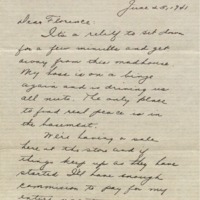 June 25, 1941
Dear Florence:
It's a relief to sit down
for a few minutes and get
away from this madhouse.
My boss is on a binge
again and is driving us
all nuts. The only place
to find real peace is in
the basement.
We're having a sale
here at the store and if
things keep up as they have
started I'll have enough
commission to pay for my
entire